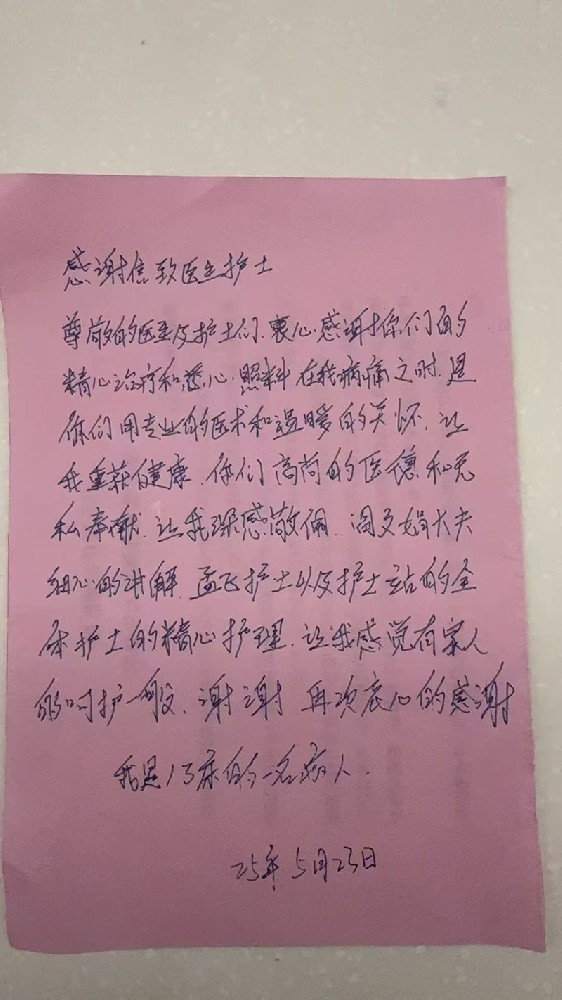 感谢信致医生护士
尊敬的医生及护士们、衷心感谢你们的
精心治疗和悉心照料在我病痛之时是
你们用专业的医术和温暖的关怀、让
我重获健康、你们高尚的医德和无
私奉献、让我深感敬佩、闫文娟大夫
细心的讲解、孟飞护士以及护士站的全
体护士的精心护理、让我感觉有家人
的呵护一般、谢谢 再次衷心的感谢
我是13床的一名病人.
25年5月23日